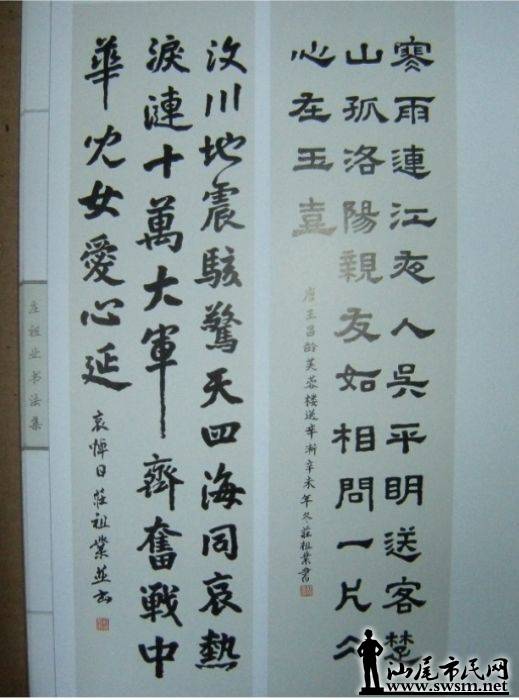 寒雨連江夜入吳平明送客楚
山孤洛陽親友如相問一片仌
心在玉壺
唐王昌龄芙蓉樓送辛漸辛未年冬莊祖業書
汶川地震駭驚天四海同哀熱
淚漣十萬大軍齊奮戰中
華兒女愛心延
哀悼日莊祖業並書
庄祖业书法集
汕尾市民网
www.swsm.net